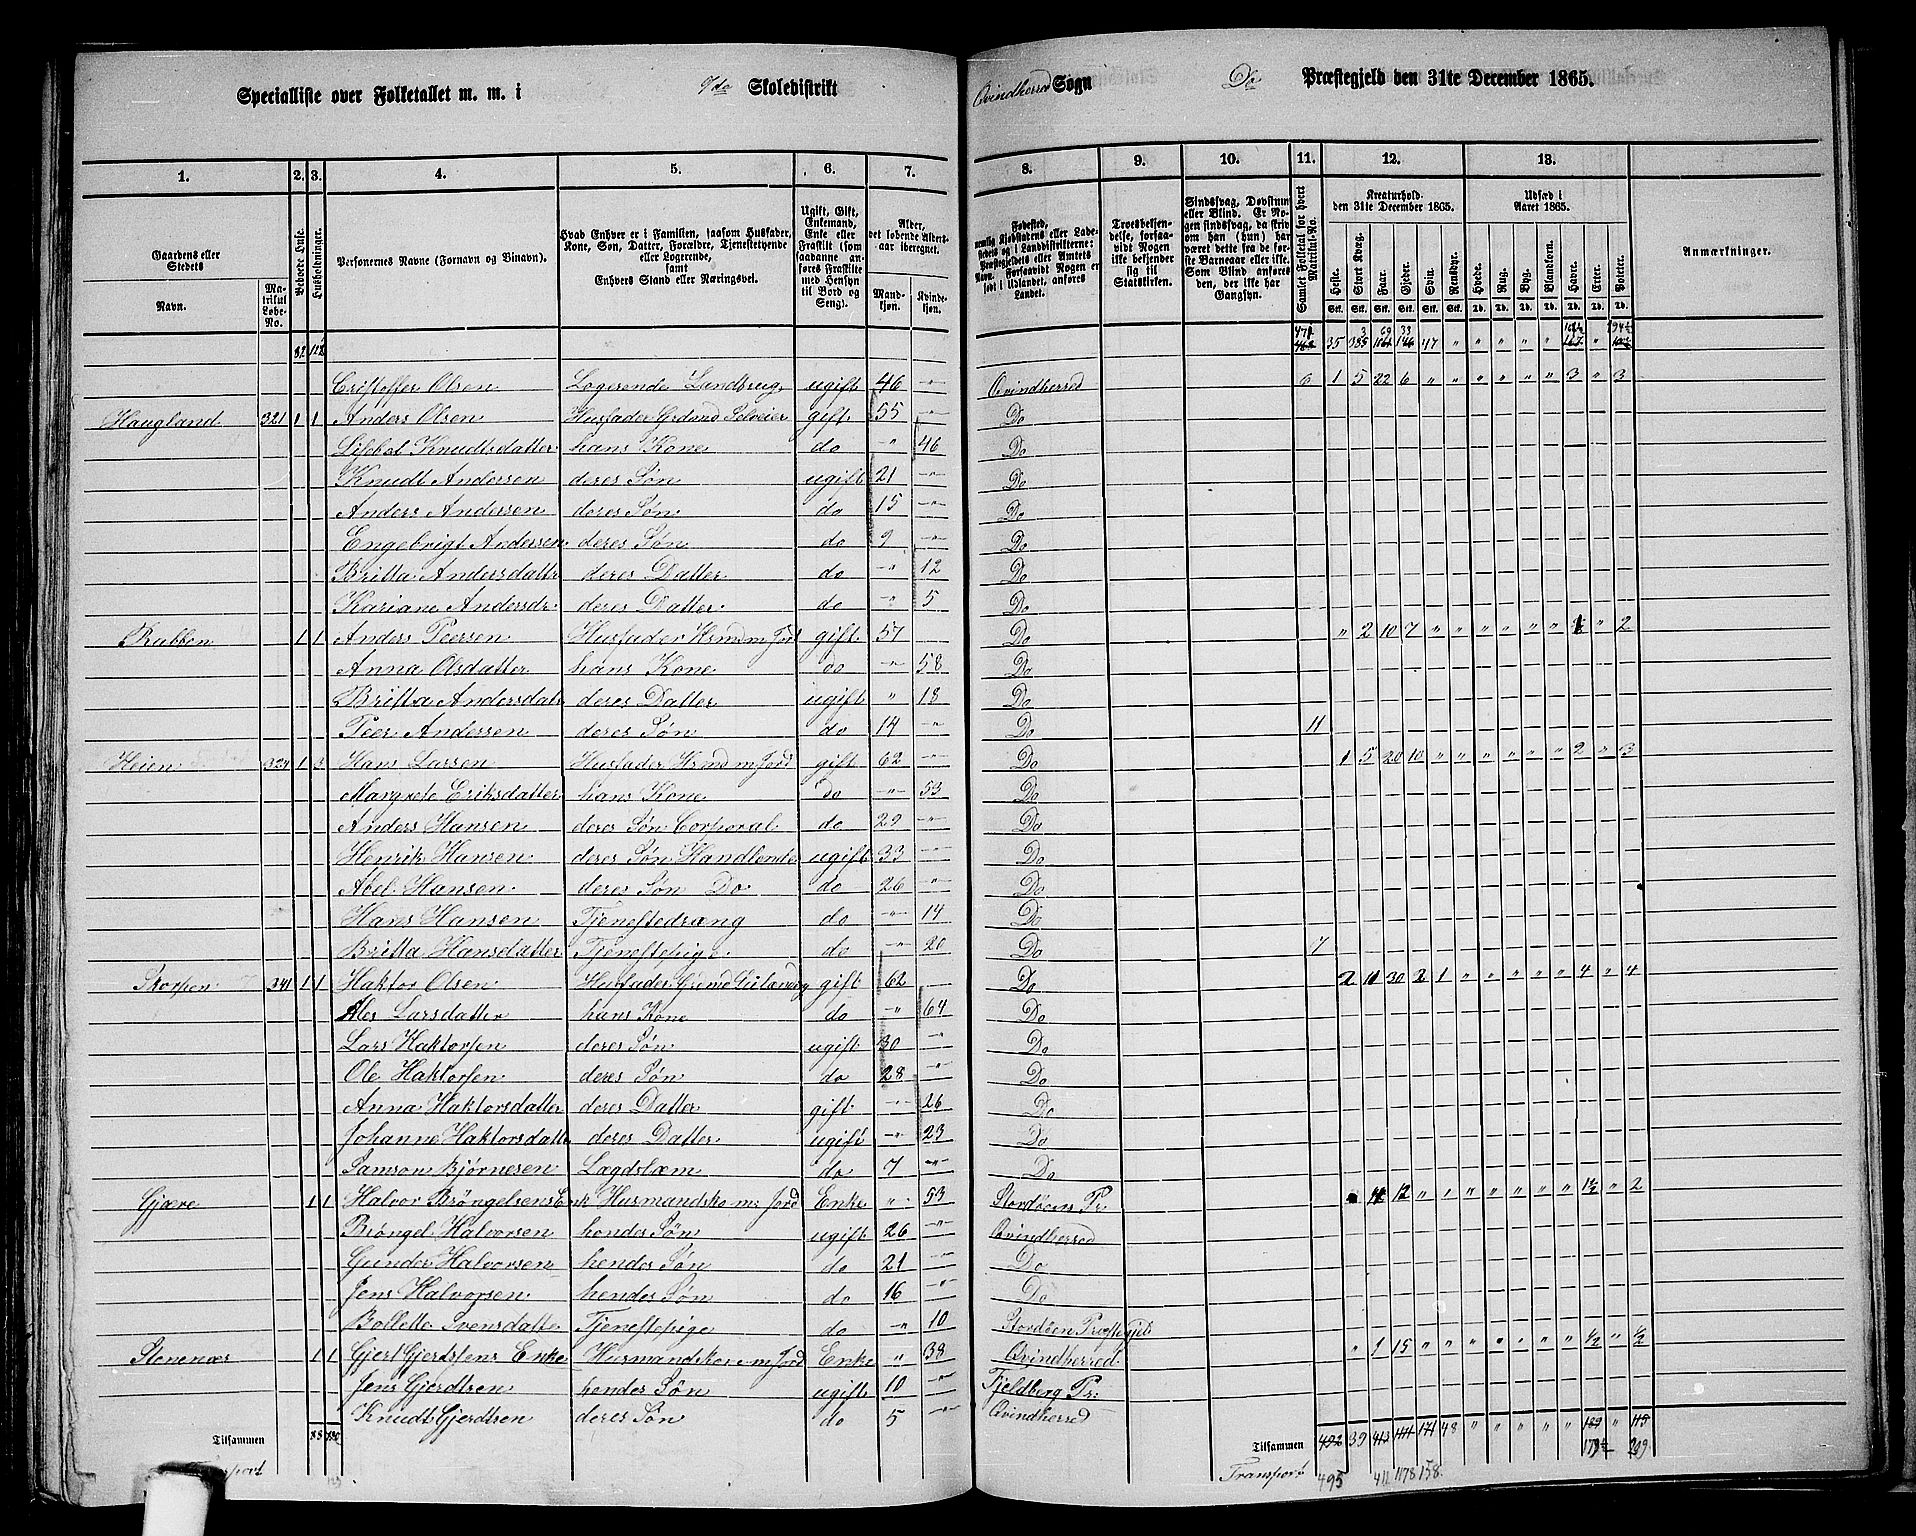 Specialliste over Folketallet m. m. i 9de Skoledistrikt Qvindherred Sogn Do Præstegjeld den 31te December 1865.
1. 2. 3. 4. 5. 6. 7. 8. 9. 10. 11. 12. 13.
Gaardens eller Stedets
Navn. Matrikul Løbe-No.
Beboede Huse.
Husholdninger.
Personernes Navne (Fornavn og Binavn).
Hvad Enhver er i Familien, saasom Husfader, Kone, Søn, Datter, Forældre, Tjenestetyende eller Logerende, samt Enhvers Stand eller Næringsvei.
Ugift, Gift, Enkemand, Enke eller Fraskilt (saadanne anføres som Fraskilte med Hensyn til Bord og Seng).
Alder, det løbende Aldersaar iberegnet.
Mandkjøn. Kvindekjøn.
Fødested, nemlig Kjøbstadens eller Ladestedets og i Landdistrikterne: Præstegjeldets eller Amtets Navn. Forsaavidt Nogen er født i Udlandet, anføres Landet.
Troesbekjendelse, forsaavidt Nogen ikke bekjender sig til Statskirken.
Sindssvag, Døvstum eller Blind.
Samlet Folketal for hvert Matrikul-No.
Kreaturhold den 31te December 1865.
Heste. Stort Kvæg. Faar. Gjeder. Sviin. Rensdyr.
Udsæd i Aaret 1865.
Hvede. Rug. Byg. Blandkorn. Havre. Erter. Poteter.
Anmærkninger.
82 122 35 385 47
Cristoffer Olsen Logerende Landbrug ugift 46 " Qvindherred 6 1 5 22 6 " " " " " " 3 " 3
Haugland 321 1 1 Anders Olsen Husfader Grdmd Selveier gift 55 " Do
Lisbet Knudtsdatter hans Kone do " 46 Do
Knudt Andersen deres Søn ugift 21 " Do
Anders Andersen deres Søn do 15 " Do
Engebrigt Andersen deres Søn do 9 " Do
Britta Andersdattr deres Datter do " 12 Do
Kariane Andersdr. deres Datter do " 5 Do
Rabben 1 1 Anders Peersen Husfader Hsmd m Jord gift 57 Do " 2 10 7 " " " " " " 1 " 2
Anna Olsdatter hans Kone do " 58 Do
Britta Andersdatr deres Datter ugift " 18 Do
Peer Andersen deres Søn do 14 " Do 11
Heien 324 1 3 Hans Larsen Husfader Hsmd m Jord gift 62 " Do 1 5 20 10 " " " " " " 2 " 3
Margrete Eriksdatter hans Kone do " 53 Do
Anders Hansen deres Søn Corporal do 29 " Do
Henrik Hansen deres Søn Handlende ugift 33 " Do
Abel Hansen deres Søn Do do 26 " Do
Hans Hansen Tjenestedræng do " 14 Do
Britta Hansdatter Tjenestepige do " 20 Do 7
Skorpen 341 1 1 Haktor Olsen Husfader Grdmd Leilænding gift 62 Do 2 11 30 2 1 " " " " " 4 " 4
Ales Larsdatter hans Kone do " 64 Do
Lars Haktorsen deres Søn ugift 30 " Do
Ole Haktorsen deres Søn do 28 " Do
Anna Haktorsdatter deres Datter gift " 26 Do
Johanne Haktorsdatte deres Datter ugift " 23 Do
Samson Bjørnesen Lægdslæm do 7 " Do
Gjære 1 1 Halvor Brøngelsens Enk Husmandsko m: Jord Enke " 53 Stordøens Pr. 12 " " " " " " 1½ " 2
Brøngel Halvorsen hendes Søn ugift 26 " Qvindherred
Gunder Halvorsen hendes Søn do 21 " Do
Jens Halvorsen hendes Søn do 16 " Do
Bollette Svensdatte Tjenestepige do " 10 Stordøen Præstegjel
Stenenær 1 1 Gjert Gjertsens Enke Husmandskone m Jord Enke " 38 Qvindherred " 1 15 " " " " " " " ½ " ½
Jens Gjerdtsen hendes Søn ugift 10 " Fjeldberg Pr:
Knudt Gjerdtsen deres Søn do 5 " Qvindherred
Tilsammen 88 130 Tilsammen 492 39 413 1171 48 " " " " 189 "
Transport Transport 495 412 1178 158. 209